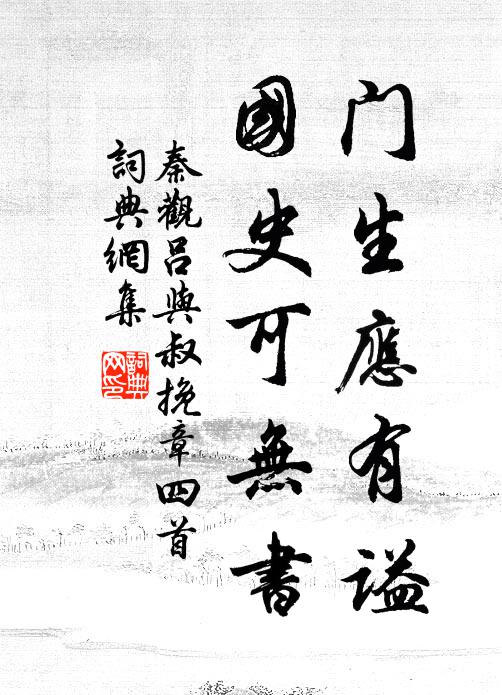 门生應有谥
國史可無書
秦觀吕與叔挽章四首
詞典網集
詞典
网印